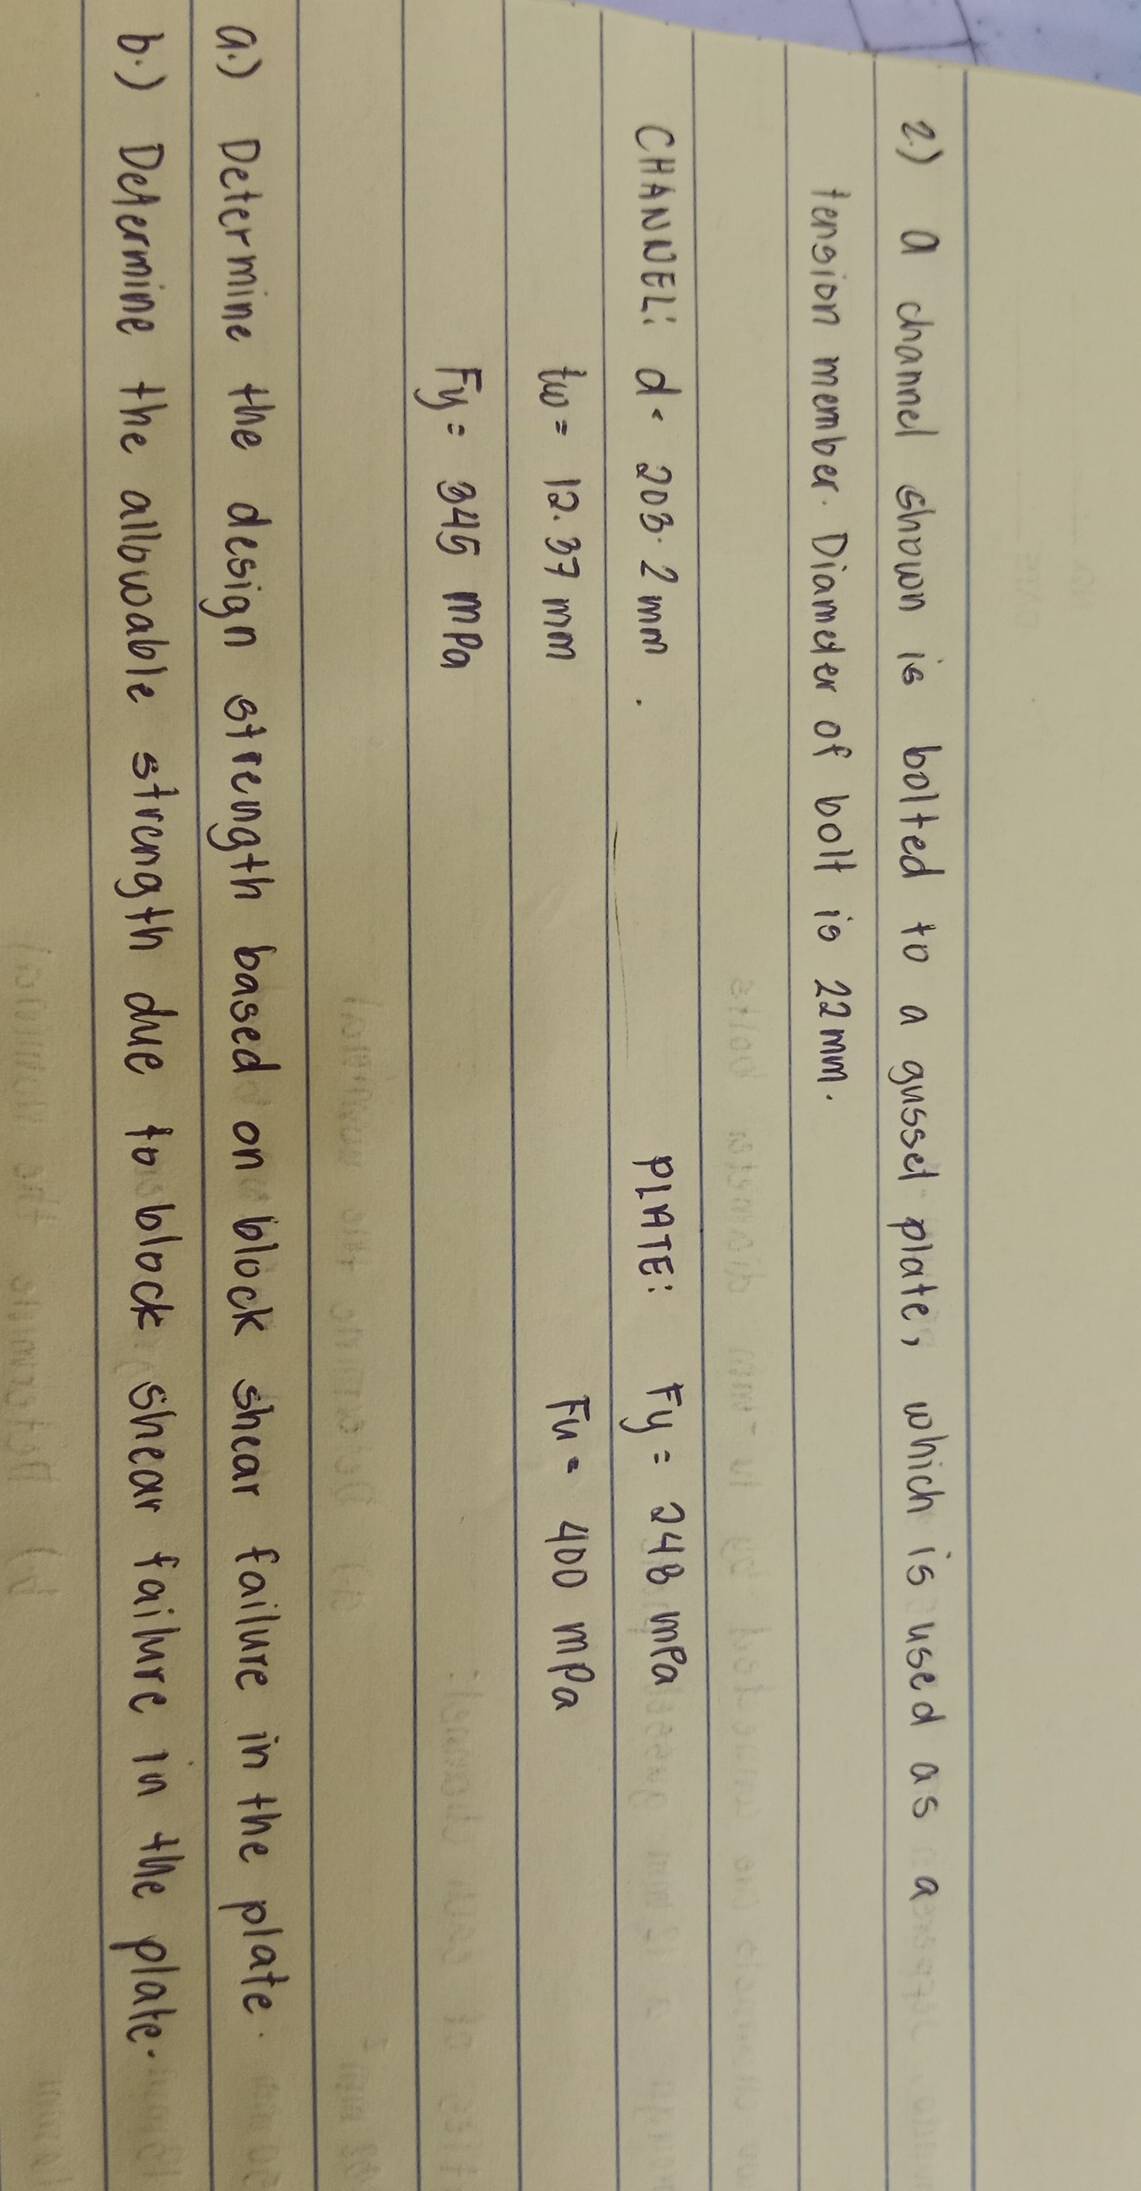 2.) a channel shown is bolted to a gusset plate, which is used as a
tension member. Diameter of bolt is 22mm.
CHANNEL: d = 203.2mm. PLATE: Fy = 248 mPa
tw = 12.37mm Fu = 400 mPa
Fy = 345 mPa
a.) Determine the design strength based on block shear failure in the plate.
b.) Determine the allowable strength due to block shear failure in the plate.